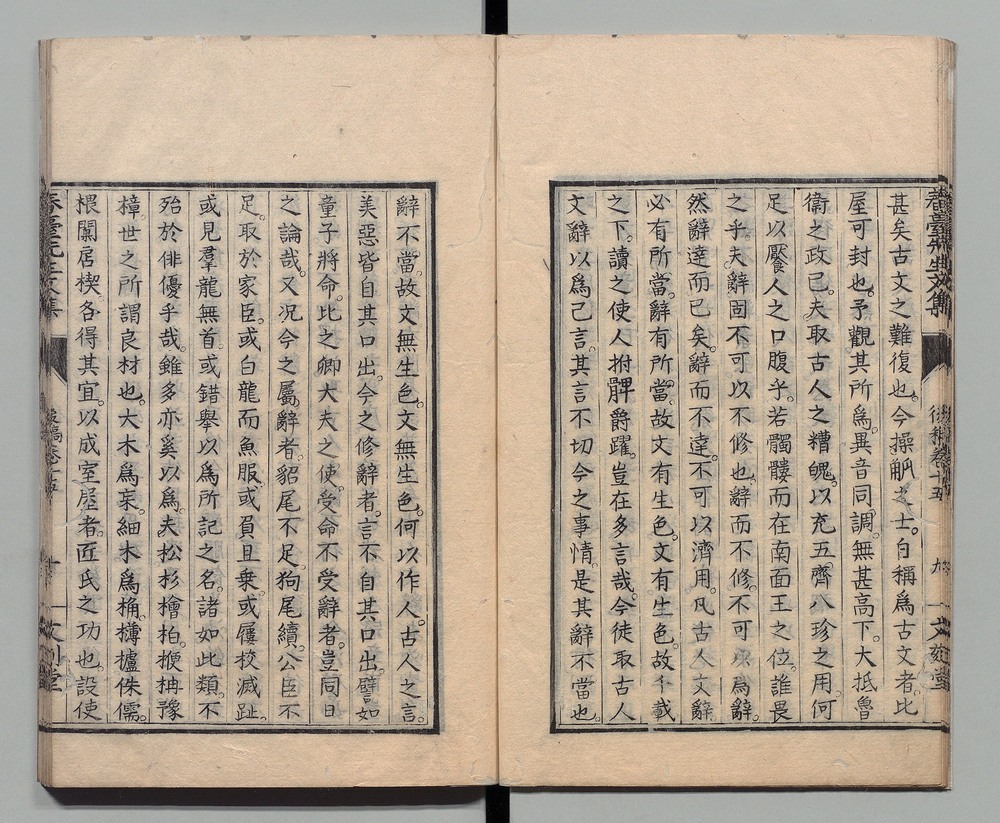 春臺先生文集
後稿卷十五
九
甚矣古文之難復也。今操觚之士。自稱爲古文者。比
屋可封也。予觀其所爲。異音同調。無甚高下。大抵魯
衞之政已。夫取古人之糟魄。以充五齊八珍之用。何
足以饜人之口腹乎。若髑髏而在南面王之位。誰畏
之乎。夫辭固不可以不修也。辭而不修。不可以爲辭。
然辭達而已矣。辭而不達。不可以濟用。凡古人文辭
必有所當。辭有所當。故文有生色。文有生色。故千載
之下。讀之使人拊髀爵躍。豈在多言哉。今徒取古人
文辭以爲己言。其言不切今之事情。是其辭不當也。
辭不當。故文無生色。文無生色。何以作人。古人之言。
美惡皆自其口出。今之修辭者。言不自其口出。譬如
童子將命。比之卿大夫之使。受命不受辭者。豈同日
之論哉。又況今之屬辭者。貂尾不足。狗尾續。公臣不
足。取於家臣。或白龍而魚服。或負且乘。或屨校滅趾。
或見羣龍無首。或錯舉以爲所記之名。諸如此類。不
殆於俳優乎哉。雖多亦奚以爲。夫松杉檜柏。楩柟豫
樟。世之所謂良材也。大木爲杗。細木爲桷。欂櫨侏儒。
椳闑扂楔。各得其宜。以成室屋者。匠氏之功也。設使
春臺先生文集
後稿卷十五